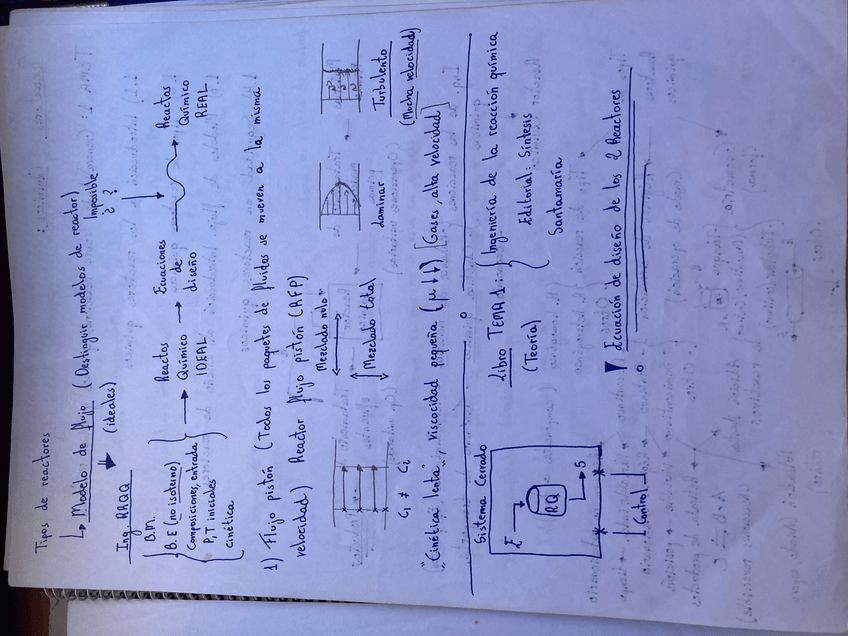 Tipos de reactores
Modelo de flujo (Destinguir modelos de reactor)
(ideales)
Imposible
¿ ?
Ing. RRQQ
B.M.
B.E (no isotermo)
Composiciones, entrada
P, T iniciales
cinética
Reactos
Químico
IDEAL
Ecuaciones
de
diseño
Reactos
Químico
REAL
1) Flujo pistón (Todos los paquetes de fluidos se mueven a la misma
velocidad) Reactor flujo pistón (RFP)
Mezclado nulo
Mezclado total
C1 ≠ C2
Laminar
Turbulento
(Mucha velocidad)
"Cinética lenta", Viscocidad pequeña (μ ↓↓) [Gases, alta velocidad]
Sistema Cerrado
E
RQ
S
Control
Libro TEMA 1:
(Teoría)
Ingeniería de la reacción química
Editorial: Síntesis
Santamaría
Ecuación de diseño de los 2 Reactores